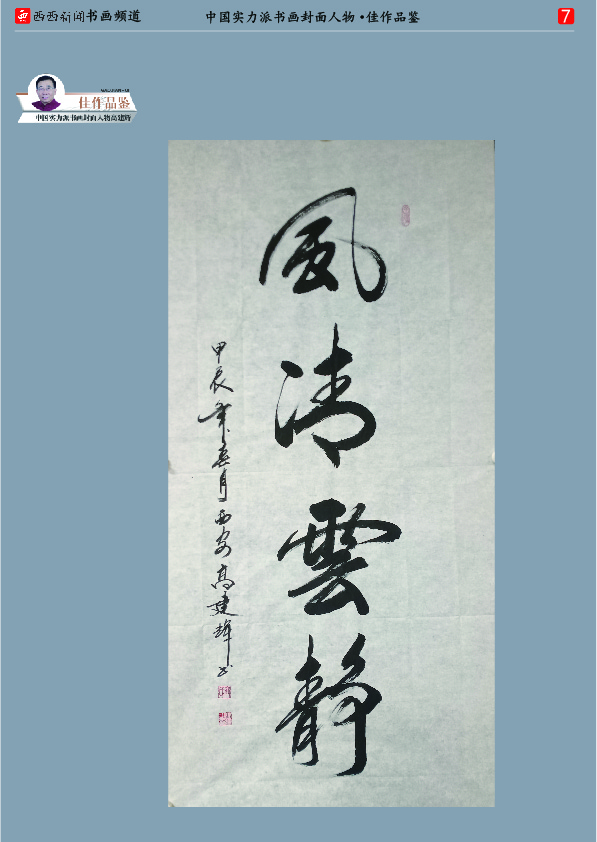 西西新闻书画频道
中国实力派书画封面人物·佳作品鉴
7
佳作品鉴
中国实力派书画封面人物高建辉
風清雲靜
甲辰年春月西安高建辉书